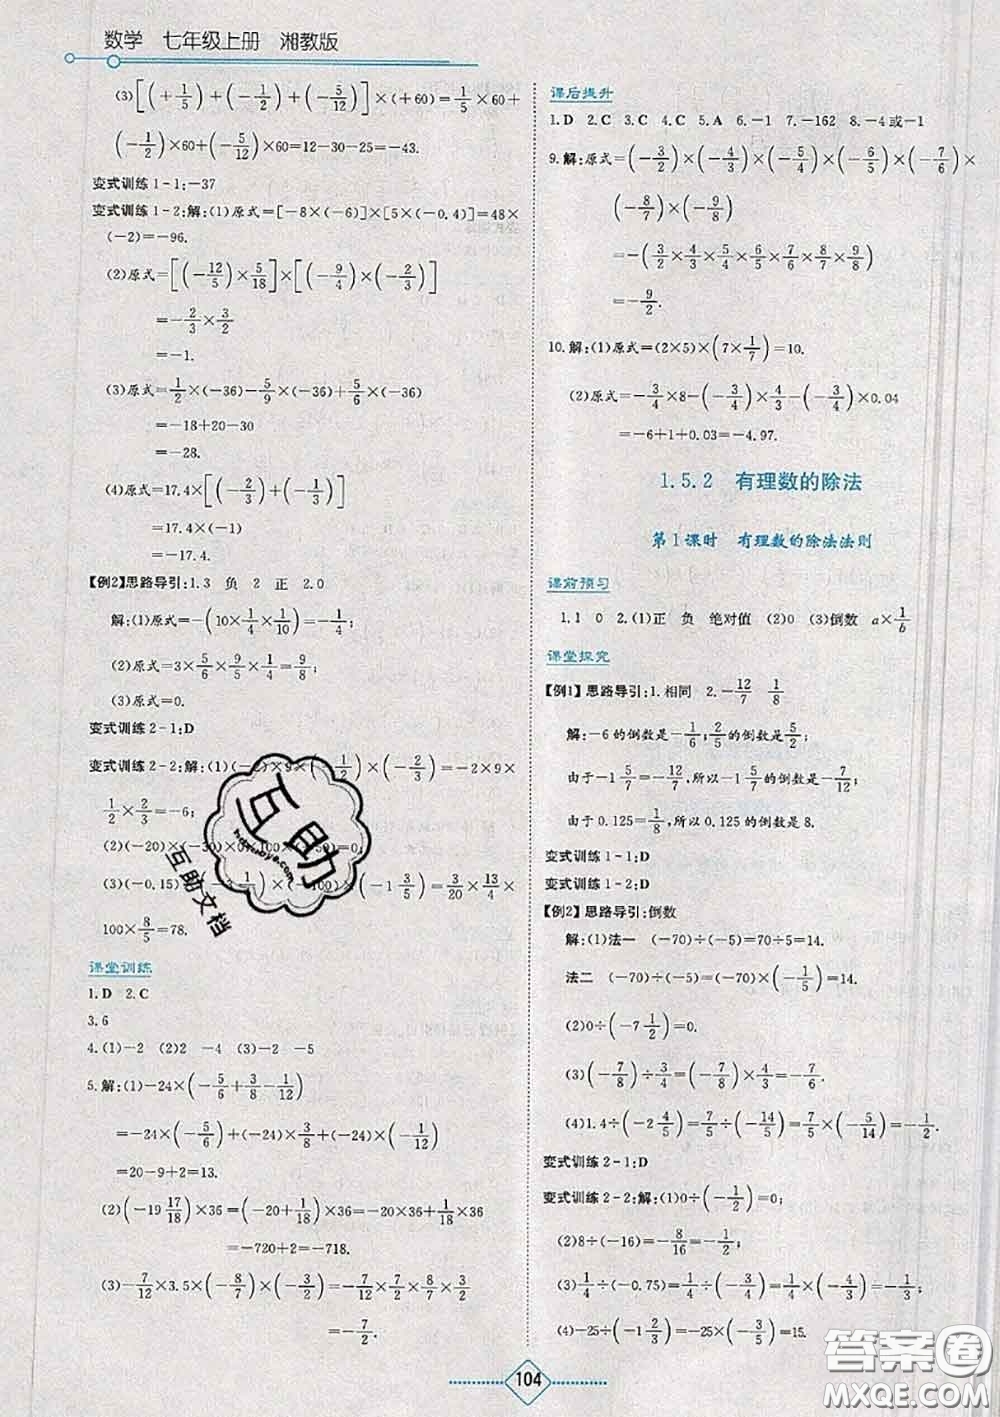 数学 七年级上册 湘教版
(3)[(+1/5)+(-1/2)+(-5/12)]×(+60)=1/5×60+
(-1/2)×60+(-5/12)×60=12-30-25=-43.
变式训练1-1:-37
变式训练1-2:解:(1)原式=[-8×(-6)]×[5×(-0.4)]=48×
(-2)=-96.
(2)原式=[(-12/5)×5/18]×[(-9/4)×(-2/3)]
=-2/3×3/2
=-1.
(3)原式=1/2×(-36)-5/9×(-36)+5/6×(-36)
=-18+20-30
=-28.
(4)原式=17.4×[(-2/3)+(-1/3)]
=17.4×(-1)
=-17.4.
【例2】思路导引:1.3 负 2 正 2.0
解:(1)原式=-(10×1/4×1/10)=-1/4;
(2)原式=3×5/6×9/5×1/4=9/8;
(3)原式=0.
变式训练2-1:D
变式训练2-2:解:(1)(-2)×9×(-1/2)×(-2/3)=-2×9×
1/2×2/3=-6;
(2)(-20)×(-30)×(-50)×0=0;
(3)(-0.15)× ×(-100)×(-1 3/5)=3/20×13/10×
100×8/5=78.
课堂训练
1.D 2.C
3.6
4.(1)-2 (2)2 -4 (3)-2 -5
5.解:(1)-24×(-5/6+3/8-1/12)
=-24×(-5/6)+(-24)×3/8+(-24)×(-1/12)
=20-9+2=13.
(2)(-19 17/18)×36=(-20+1/18)×36=-20×36+1/18×36
=-720+2=-718.
(3)-7/12×3.5×(-8/7)×(-3/2)=-7/12×7/2×8/7×3/2
=-7/2.
课后提升
1.D 2.C 3.C 4.C 5.A 6.-1 7.-162 8.-4或-1
9.解:原式=(-3/2)×(-4/3)×(-5/4)×(-6/5)×(-7/6)×
(-8/7)×(-9/8)
=-(3/2×4/3×5/4×6/5×7/6×8/7×9/8)
=-9/2.
10.解:(1)原式=(2×5)×(7×1/7)=10.
(2)原式=-3/4×8-(-3/4)×4/3-(-3/4)×0.04
=-6+1+0.03=-4.97.
1.5.2 有理数的除法
第1课时 有理数的除法法则
课前预习
1.1 0 2.(1)正 负 绝对值 (2)0 (3)倒数 a×1/b
课堂探究
【例1】思路导引:1.相同 2.-12/7 1/8
解:-6的倒数是-1/6;2/5的倒数是5/2;
由于-1 5/7=-12/7,所以-1 5/7的倒数是-7/12;
由于0.125=1/8,所以0.125的倒数是8.
变式训练1-1:D
变式训练1-2:D
【例2】思路导引:倒数
解:(1)法一 (-70)÷(-5)=70÷5=14.
法二 (-70)÷(-5)=(-70)×(-1/5)=14.
(2)0÷(-7 1/2)=0.
(3)(-7/8)÷3/4=(-7/8)×4/3=-7/6.
(4)1.4÷(-2 4/5)=7/5÷(-14/5)=7/5×(-5/14)=-1/2.
变式训练2-1:D
变式训练2-2:解:(1)0÷(-1/2)=0;
(2)8÷(-16)=-8/16=-1/2;
(3)1/4÷(-0.75)=1/4÷(-3/4)=1/4×(-4/3)=-1/3;
(4)-25÷(-1 2/3)=-25×(-3/5)=15.
104
互助
hdzuoye.com
互助文档
答案圈
MXQE.COM